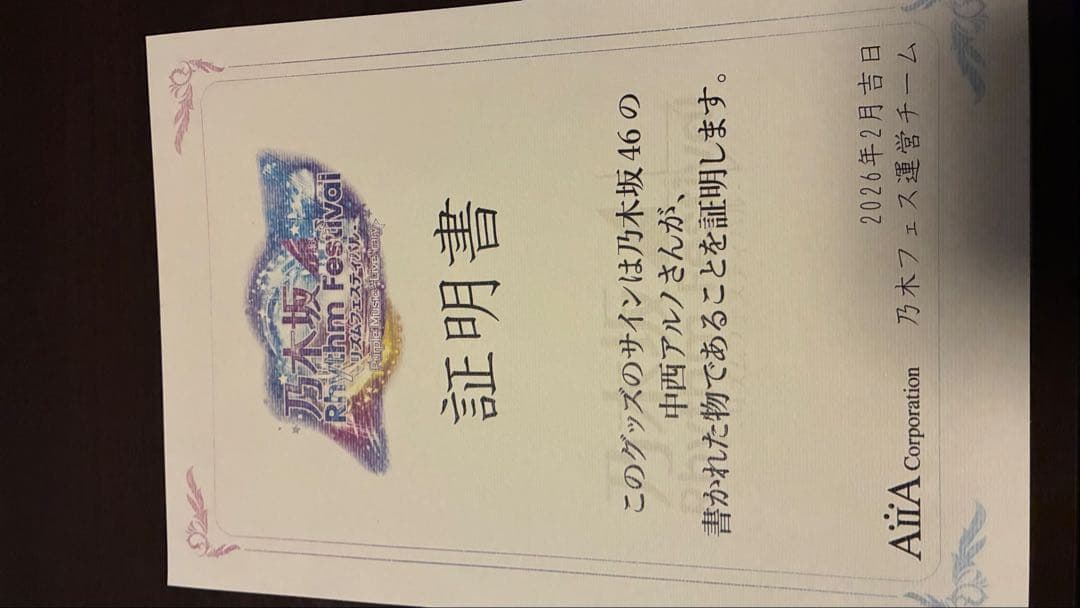 乃木坂46
Rhythm Festival
リズムフェスティバル
証明書
このグッズのサインは乃木坂46の
中西アルノさんが、
書かれた物であることを証明します。
2026年2月吉日
AiiA Corporation 乃木フェス運営チーム